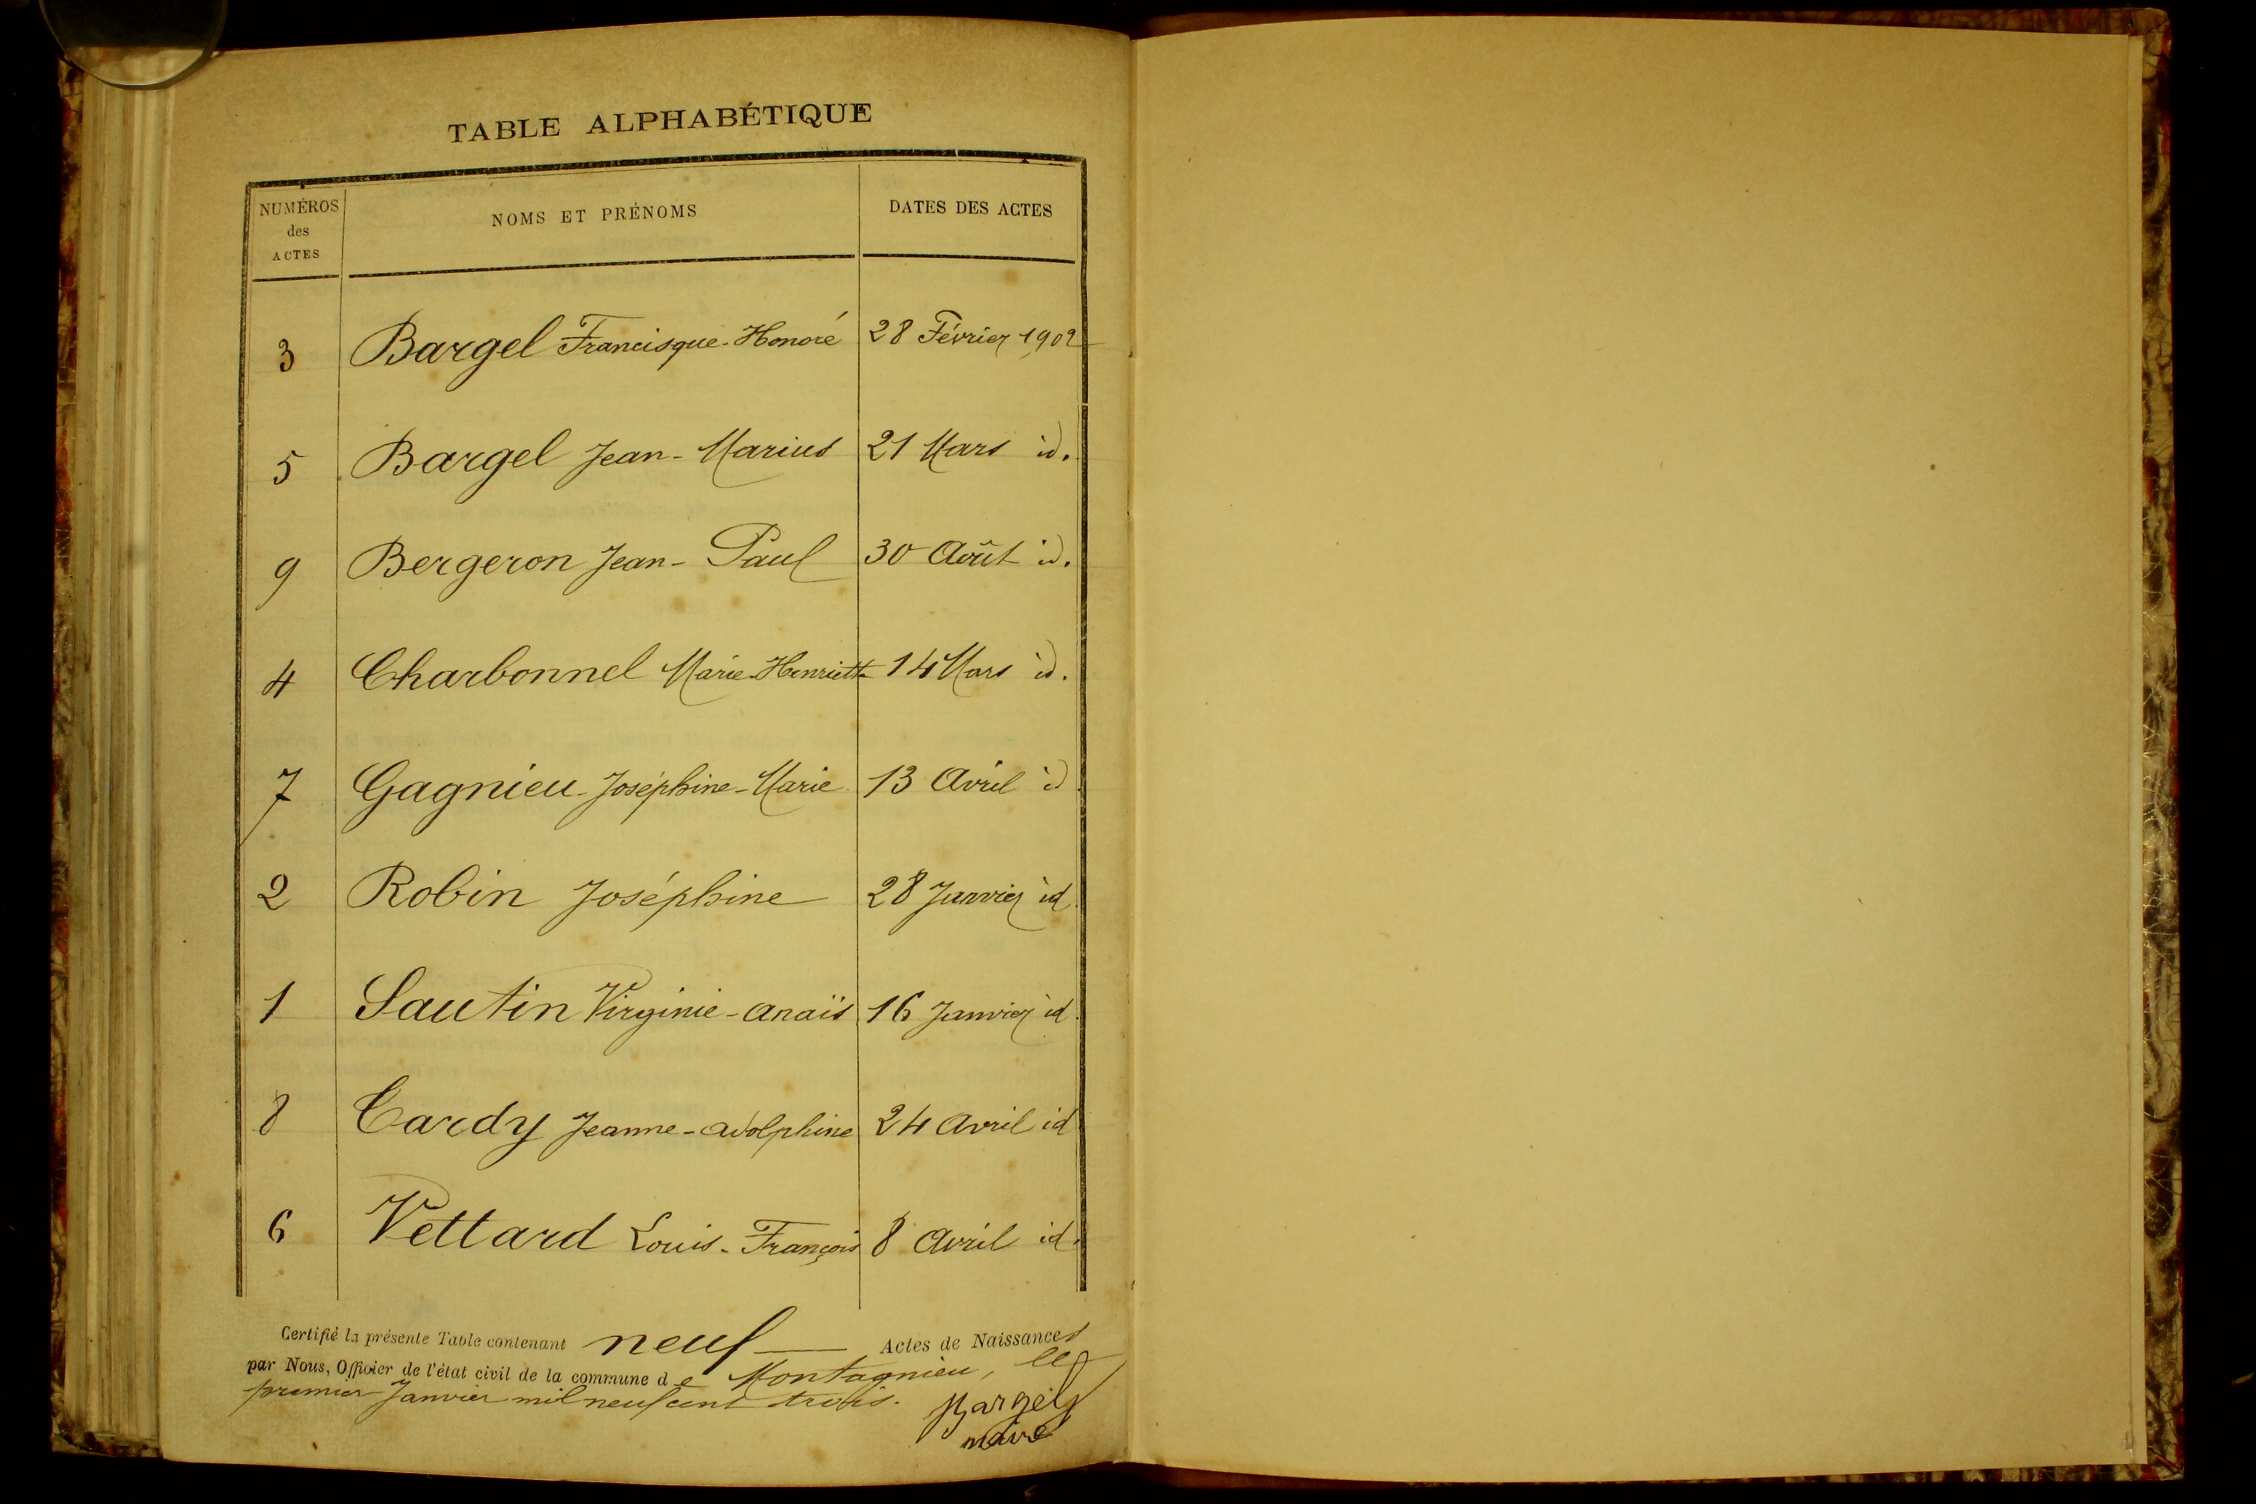 TABLE ALPHABÉTIQUE
NUMÉROS des ACTES NOMS ET PRÉNOMS DATES DES ACTES
3 Bargel Francisque-Honoré 28 Février 1902
5 Bargel Jean-Marius 21 Mars id.
9 Bergeron Jean-Paul 30 Août id.
4 Charbonnel Marie-Henriette 14 Mars id.
7 Gagnieu Joséphine-Marie 13 Avril id
2 Robin Joséphine 28 Janvier id
1 Sautin Virginie-Anaïs 16 Janvier id
8 Tardy Jeanne-Adolphine 24 Avril id
6 Vettard Louis-François 8 Avril id.
Certifié la présente Table contenant neuf Actes de Naissances
par Nous, Officier de l'état civil de la commune de Montagnieu, le
premier Janvier mil neuf cent trois.
Bargel
maire